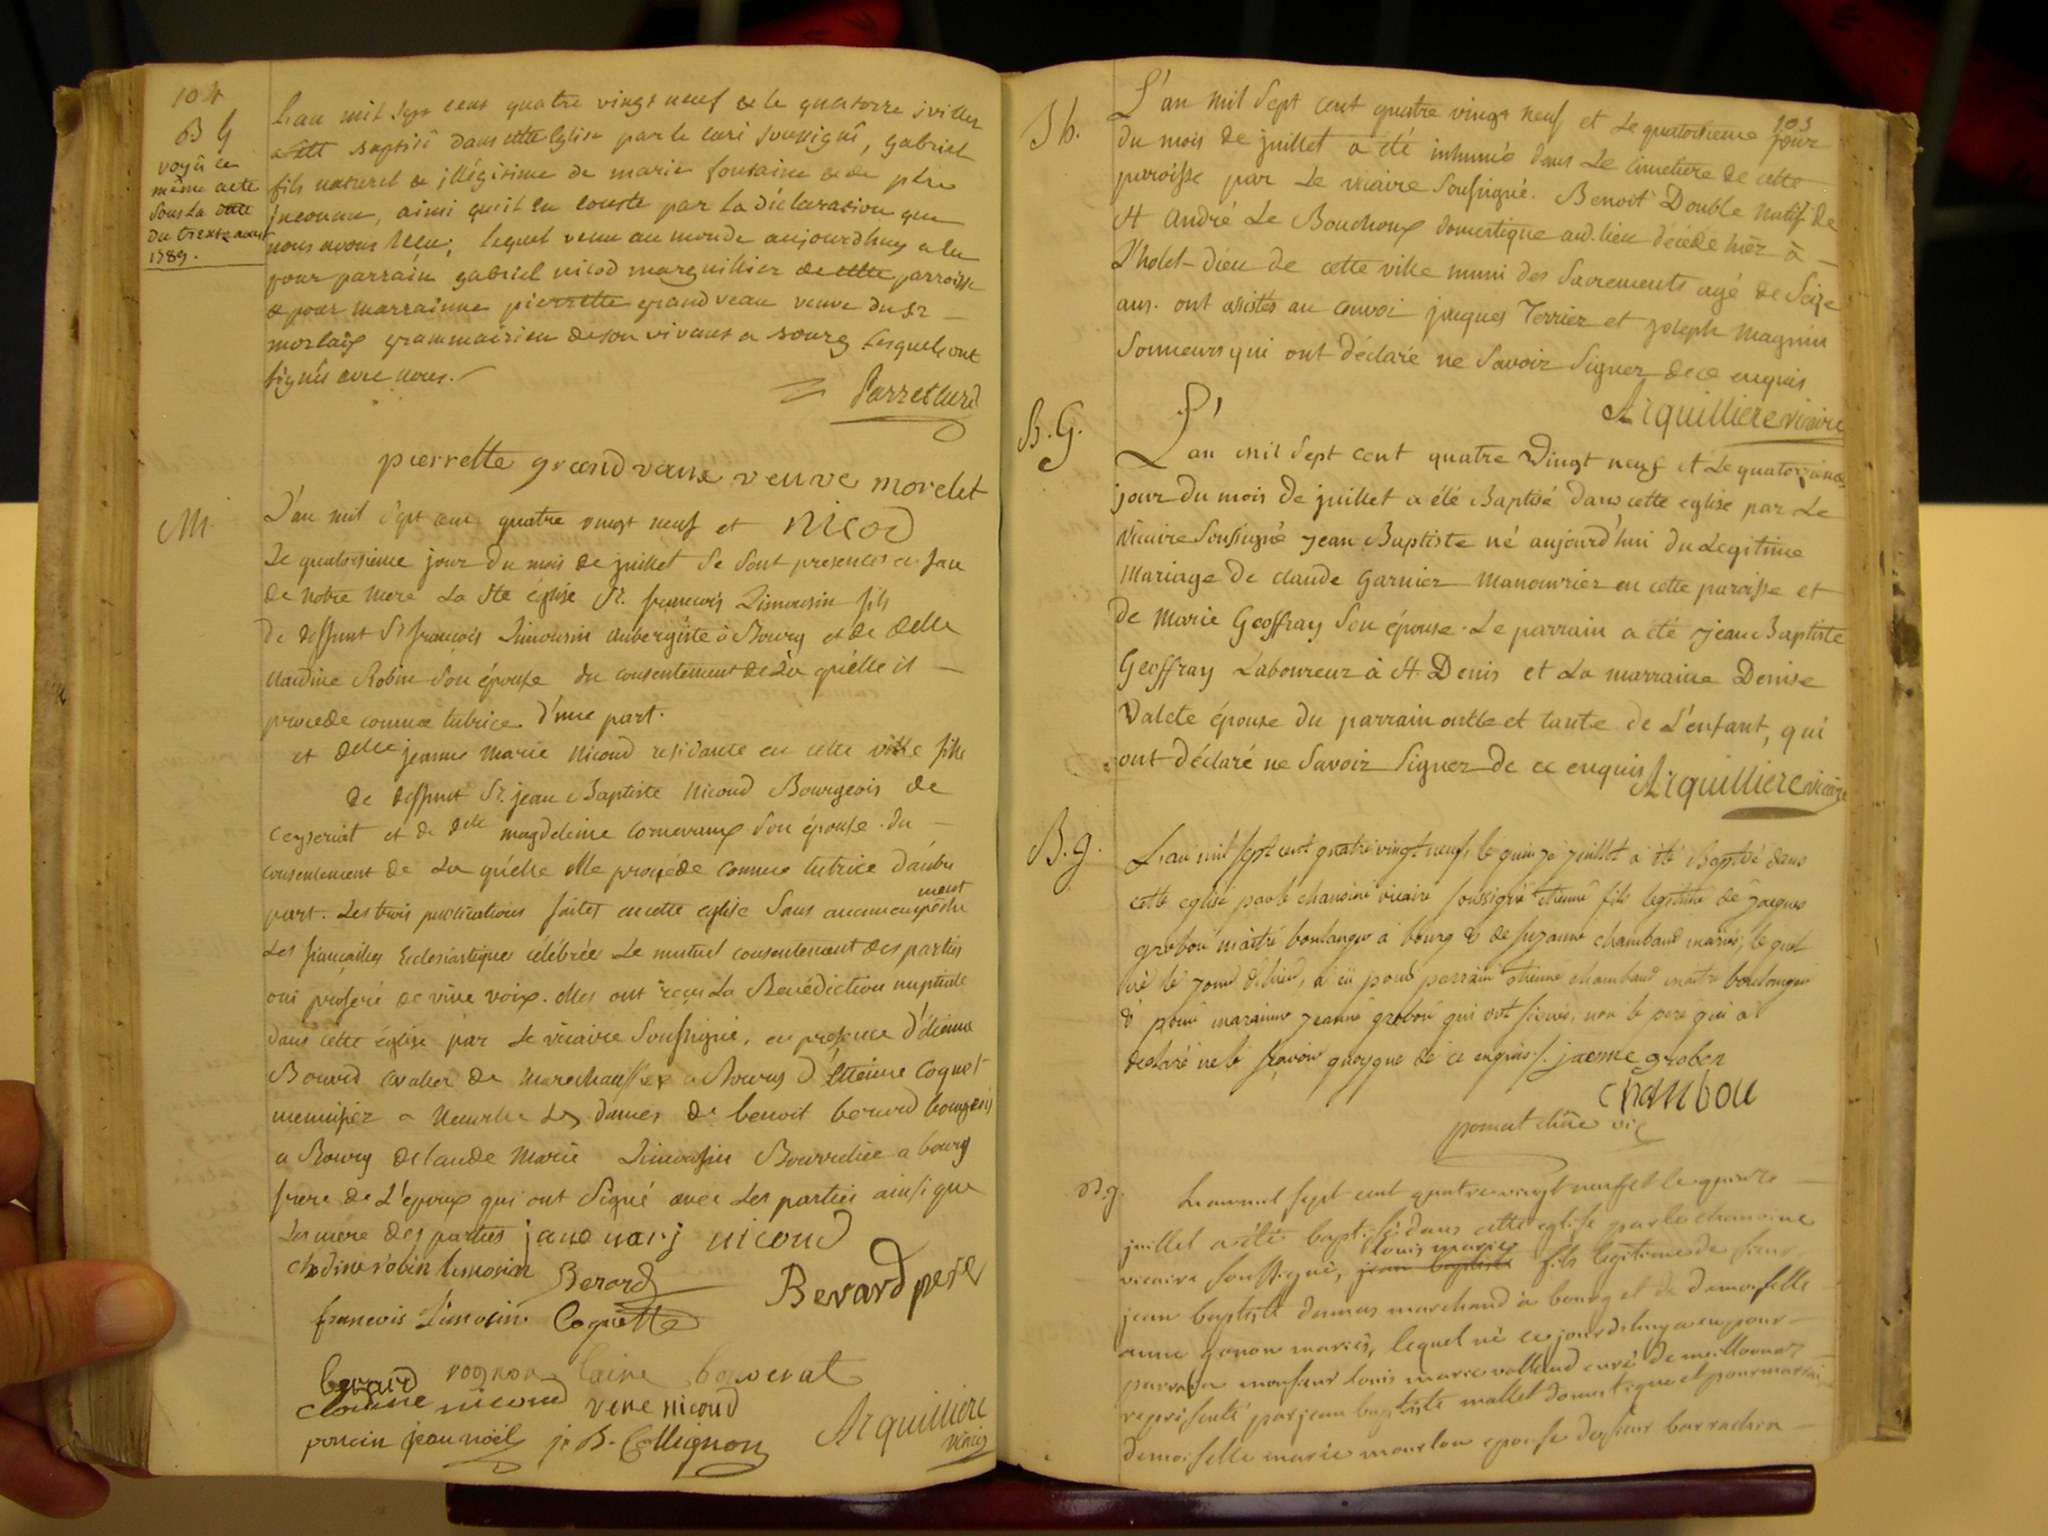 104
B G
voyé ce
même acte
sous la date
du trente aout
1789.
L'an mil sept cent quatre vingt neuf & le quatorze juillet
a été baptisé dans cette Eglise par le curé soussigné, gabriel
fils naturel & illégitime de marie fontaine & de père
inconnu, ainsi qu'il en conste par la déclaration que
nous avons recu; lequel venu au monde aujourdhuy a eu
pour parrain gabriel nicod marguillier de cette parroisse
& pour marrainne pierrette grandveau veuve du sr
morlaix grammairien de son vivant a bourg lesquels ont
signés avec nous.
Parret curé
pierrette grandvaux veuve morelet
nicod
M.
L'an mil sept cent quatre vingt neuf et
Le quatorsieme jour du mois de juillet se sont presentés en face
de notre mere La Ste église Sr. françois Limousin fils
de deffunt Sr françois Limousin aubergiste à Bourg et de delle
claudine Robin son épouse du consentement de La quelle il
procede comme tutrice d'une part.
et delle jeanne Marie Nicoud residante en cette ville fille
de deffunt Sr. jean Baptiste Nicoud Bourgeois de
Ceyseriat et de delle magdeleine cornevaux son épouse du
consentement de La quelle elle procede comme tutrice d'autre
part. Les trois publications faites en cette eglise sans aucun empêche
ment
Les fiançailles Ecclesiastiques célébrées Le mutuel consentement des parties
oui proferé de vive voix. elles ont reçu La Benédiction nuptiale
dans cette église par Le vicaire Soussigné, en presence d'étienne
Bouvard cavalier de Marechaussée a Bourg d'étienne Coquet
menuisier a Neuville Les dames de benoit berard bourgeois
a Bourg de claude Marie Limousin Bourrelier a bourg
frere de L'époux qui ont Signé avec Les parties ainsi que
Les mere des parties jane marj nicoud
clodine robin limosin Berard
Berard pere
francois Limosin. Coquette
berard rognon laine bouverat
clodine nicoud vene nicoud
poncin jean noël j. B. Collegnon
Arquilliere
vicaire
103
Sh.
L'an mil Sept cent quatre vingt neuf et Le quatorsieme jour
du mois de juillet a été inhumé dans Le cimetiere de cette
paroisse par Le vicaire Soussigné. Benoit Double natif de
St André Le Bouchoux domestique aud. lieu décédé hier à
L'hotel-dieu de cette ville muni des Sacrements agé de Seize
ans. ont assistés au convoi jacques Terrier et joseph Magnin
Sonneurs qui ont déclaré ne Savoir Signer de ce enquis
Arquilliere vicaire
B. G.
L'an mil Sept cent quatre Vingt neuf et Le quatorsieme
jour du mois de juillet a été Baptisé dans cette eglise par Le
Vicaire Soussigné jean Baptiste né aujourd'hui du Legitime
Mariage de claude Garnier Manouvrier en cette paroisse et
de Marie Geoffray Son épouse. Le parrain a été jean Baptiste
Geoffray Laboureur à St Denis et La marraine Denise
Valete épouse du parrain oncle et tante de L'enfant, qui
ont déclaré ne Savoir Signer de ce enquis Arquilliere vicaire
B. g.
L'an mil sept cent quatre vingt neuf, le quinze juillet a été Baptisé dans
cette eglise par le chanoine vicaire soussigné étienne fils legitime de jacques
grobon maître boulanger a bourg & de suzanne chambaud mariés; le quel
né le jour d'hier, a eu pour parrain étienne chambaud maitre boulanger
& pour maraine jeanne grobon qui ont signés, non le pere qui a
declaré ne le sçavoir quoyque de ce enquis./. jaenne grobon
chanbou
pomat chne vic
B. g.
L'an mil sept cent quatre vingt neuf et le quinze
juillet a été baptisé dans cette eglise par le chanoine
louis marie
vicaire soussigné, jean baptiste fils legitime de sieur
jean baptiste dumas marchand à bourg et de demoiselle
anne gonon mariés, lequel né ce jourdhuy a eu pour
parrain monsieur louis marie volland curé de meillonnas
representé par jean baptiste mallet domestique et pour marraine
demoiselle marie mourlon epouse de sieur barrachin